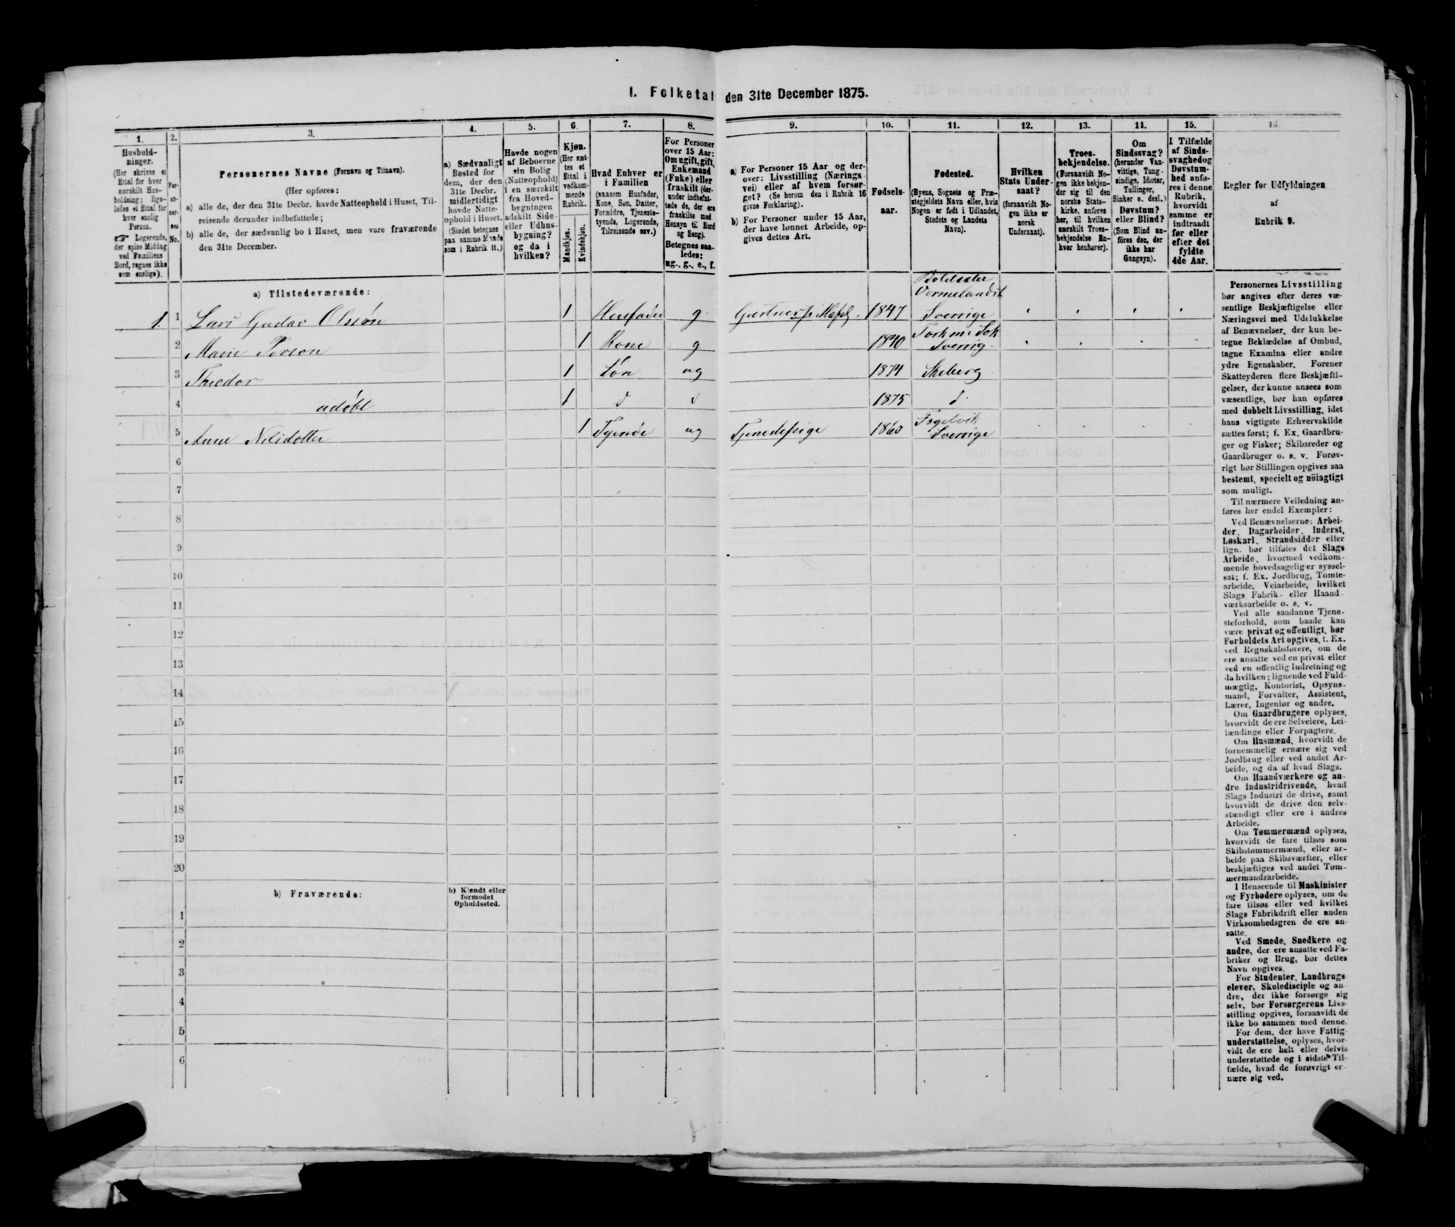 I. Folketal den 31te December 1875.
1.
Hushold-
ninger.
(Her skrives et
Ettal for hver
særskilt Hus-
holdning; lige-
ledes et Ettal for
hver enslig
Person.
Logerende,
der spise Middag
ved Familiens
Bord, regnes ikke
som enslige).
2.
Per-
so-
ner-
nes
No.
3.
Personernes Navne (Fornavn og Tilnavn).
(Her opføres:
a) alle de, der den 31te Decbr. havde Natteophold i Huset, Til-
reisende derunder indbefattede;
b) alle de, der sædvanlig bo i Huset, men vare fraværende
den 31te December.
4.
a) Sædvanligt
Bosted for
dem, der den
31te Decbr.
midlertidigt
havde Natte-
ophold i Huset.
(Stedet betegnes
paa samme Maade
som i Rubrik 11.)
5.
Havde nogen
af Beboerne
sin Bolig
(Natteophold)
i en særskilt
fra Hoved-
bygningen
adskilt Side-
eller Udhus-
bygning?
og da i
hvilken?
6.
Kjøn.
(Her sæt-
tes et
Ettal i
vedkom-
mende
Rubrik.
Mandkjøn.
Kvindekjøn.
7.
Hvad Enhver er
i Familien
(saasom Husfader,
Kone, Søn, Datter,
Forældre, Tjeneste-
tyende, Logerende,
Tilreisende osv.)
8.
For Personer
over 15 Aar:
Om ugift, gift,
Enkemand
(Enke) eller
fraskilt (der-
under indbefat-
tede de, der ere
fraskilte med
Hensyn til Bord
og Seng).
Betegnes saa-
ledes:
ug., g., e., f.
9.
a) For Personer 15 Aar og der-
over: Livsstilling (Nærings-
vei) eller af hvem forsør-
get? (Se herom den i Rubrik 16
givne Forklaring).
b) For Personer under 15 Aar,
der have lønnet Arbeide, op-
gives dettes Art.
10.
Fødsels-
aar.
11.
Fødested.
(Byens, Sognets og Præ-
stegjeldets Navn eller, hvis
Nogen er født i Udlandet,
Stedets og Landets
Navn).
12.
Hvilken
Stats Under-
saat?
(forsaavidt No-
gen ikke er
norsk
Undersaat).
13.
Troes-
bekjendelse.
(Forsaavidt No-
gen ikke bekjen-
der sig til den
norske Stats-
kirke, anføres
her, til hvilken
særskilt Troes-
bekjendelse En-
hver henhører).
14.
Om
Sindssvag?
(herunder Van-
vittige, Tung-
sindige, Idioter,
Tullinger,
Sinker o. desl.)
Døvstum?
eller Blind?
(Som Blind an-
føres den, der
ikke har
Gangsyn).
15.
I Tilfælde
af Sinds-
svaghed og
Døvstum-
hed anfø-
res i denne
Rubrik,
hvorvidt
samme er
indtraadt
før eller
efter det
fyldte
4de Aar.
16.
Regler for Udfyldningen
af
Rubrik 9.
a) Tilstedeværende:
1 1 Lars Gustav Olsson 1 Husfader g 1847 Vermelandsk Sverige
2 Marie Person 1 Kone g 1840 Sverig
3 Theodor 1 Søn ug 1874 Skeberg
4 udøbt 1 d d 1875 d
5 Anne Nilsdotter 1 Tyende ug Tjenestepige 1860 Sverige
6
7
8
9
10
11
12
13
14
15
16
17
18
19
20
b) Fraværende:
b) Kjendt eller
formodet
Opholdssted.
1
2
3
4
5
6
Personernes Livsstilling
bør angives efter deres væ-
sentlige Beskjæftigelse eller
Næringsvei med Udelukkelse
af Benævnelser, der kun be-
tegne Beklædelse af Ombud,
tagne Examina eller andre
ydre Egenskaber. Forener
Skatteyderen flere Beskjæfti-
gelser, der kunne ansees som
væsentlige, bør han opføres
med dobbelt Livsstilling, idet
hans vigtigste Erhvervskilde
sættes først; f. Ex. Gaardbru-
ger og Fisker; Skibsreder og
Gaardbruger o. s. v. Forøv-
rigt bør Stillingen opgives saa
bestemt, specielt og nöiagtigt
som muligt.
Til nærmere Veiledning an-
føres her endel Exempler:
Ved Benævnelserne: Arbei-
der, Dagarbeider, Inderst,
Løskarl, Strandsidder eller
lign. bør tilføies det Slags
Arbeide, hvormed vedkom-
mende hovedsagelig er syssel-
sat; f. Ex. Jordbrug, Tomte-
arbeide, Veiarbeide, hvilket
Slags Fabrik- eller Haand-
værksarbeide o. s. v.
Ved alle saadanne Tjene-
steforhold, som baade kan
være privat og offentligt, bør
Forholdets Art opgives, t. Ex.
ved Regnskabsførere, om de
ere ansatte ved en privat eller
ved en offentlig Indretning og
da hvilken; lignende ved Fuld-
mægtig, Kontorist, Opsyns-
mand, Forvalter, Assistent,
Lærer, Ingeniør og andre.
Om Gaardbrugere oplyses,
hvorvidt de ere Selveiere, Lei-
lændinge eller Forpagtere.
Om Husmænd, hvorvidt de
fornemmelig ernære sig ved
Jordbrug eller ved andet Ar-
beide, og da af hvad Slags.
Om Haandværkere og an-
dre Industridrivende, hvad
Slags Industri de drive, samt
hvorvidt de drive den selv-
stændigt eller ere i andres
Arbeide.
Om Tømmermænd oplyses,
hvorvidt de fare tilsøs som
Skibstømmermænd, eller ar-
beide paa Skibsværfter, eller
beskjæftiges ved andet Tøm-
mermandsarbeide.
I Henseende til Maskinister
og Fyrbødere oplyses, om de
fare tilsøs eller ved hvilket
Slags Fabrikdrift eller anden
Virksomhedsgren de ere an-
satte.
Ved Smede, Snedkere og
andre, der ere ansatte ved Fa-
briker og Brug, bør dettes
Navn opgives.
For Studenter, Landbrugs-
elever, Skoledisciple og an-
dre, der ikke forsørge sig
selv, bør Forsørgerens Livs-
stilling opgives, forsaavidt de
ikke bo sammen med denne.
For dem, der have Fattig-
understøttelse, oplyses, hvor-
vidt de ere helt eller delvis
understøttede og i sidste Til-
fælde, hvad de forøvrigt er-
nære sig ved.